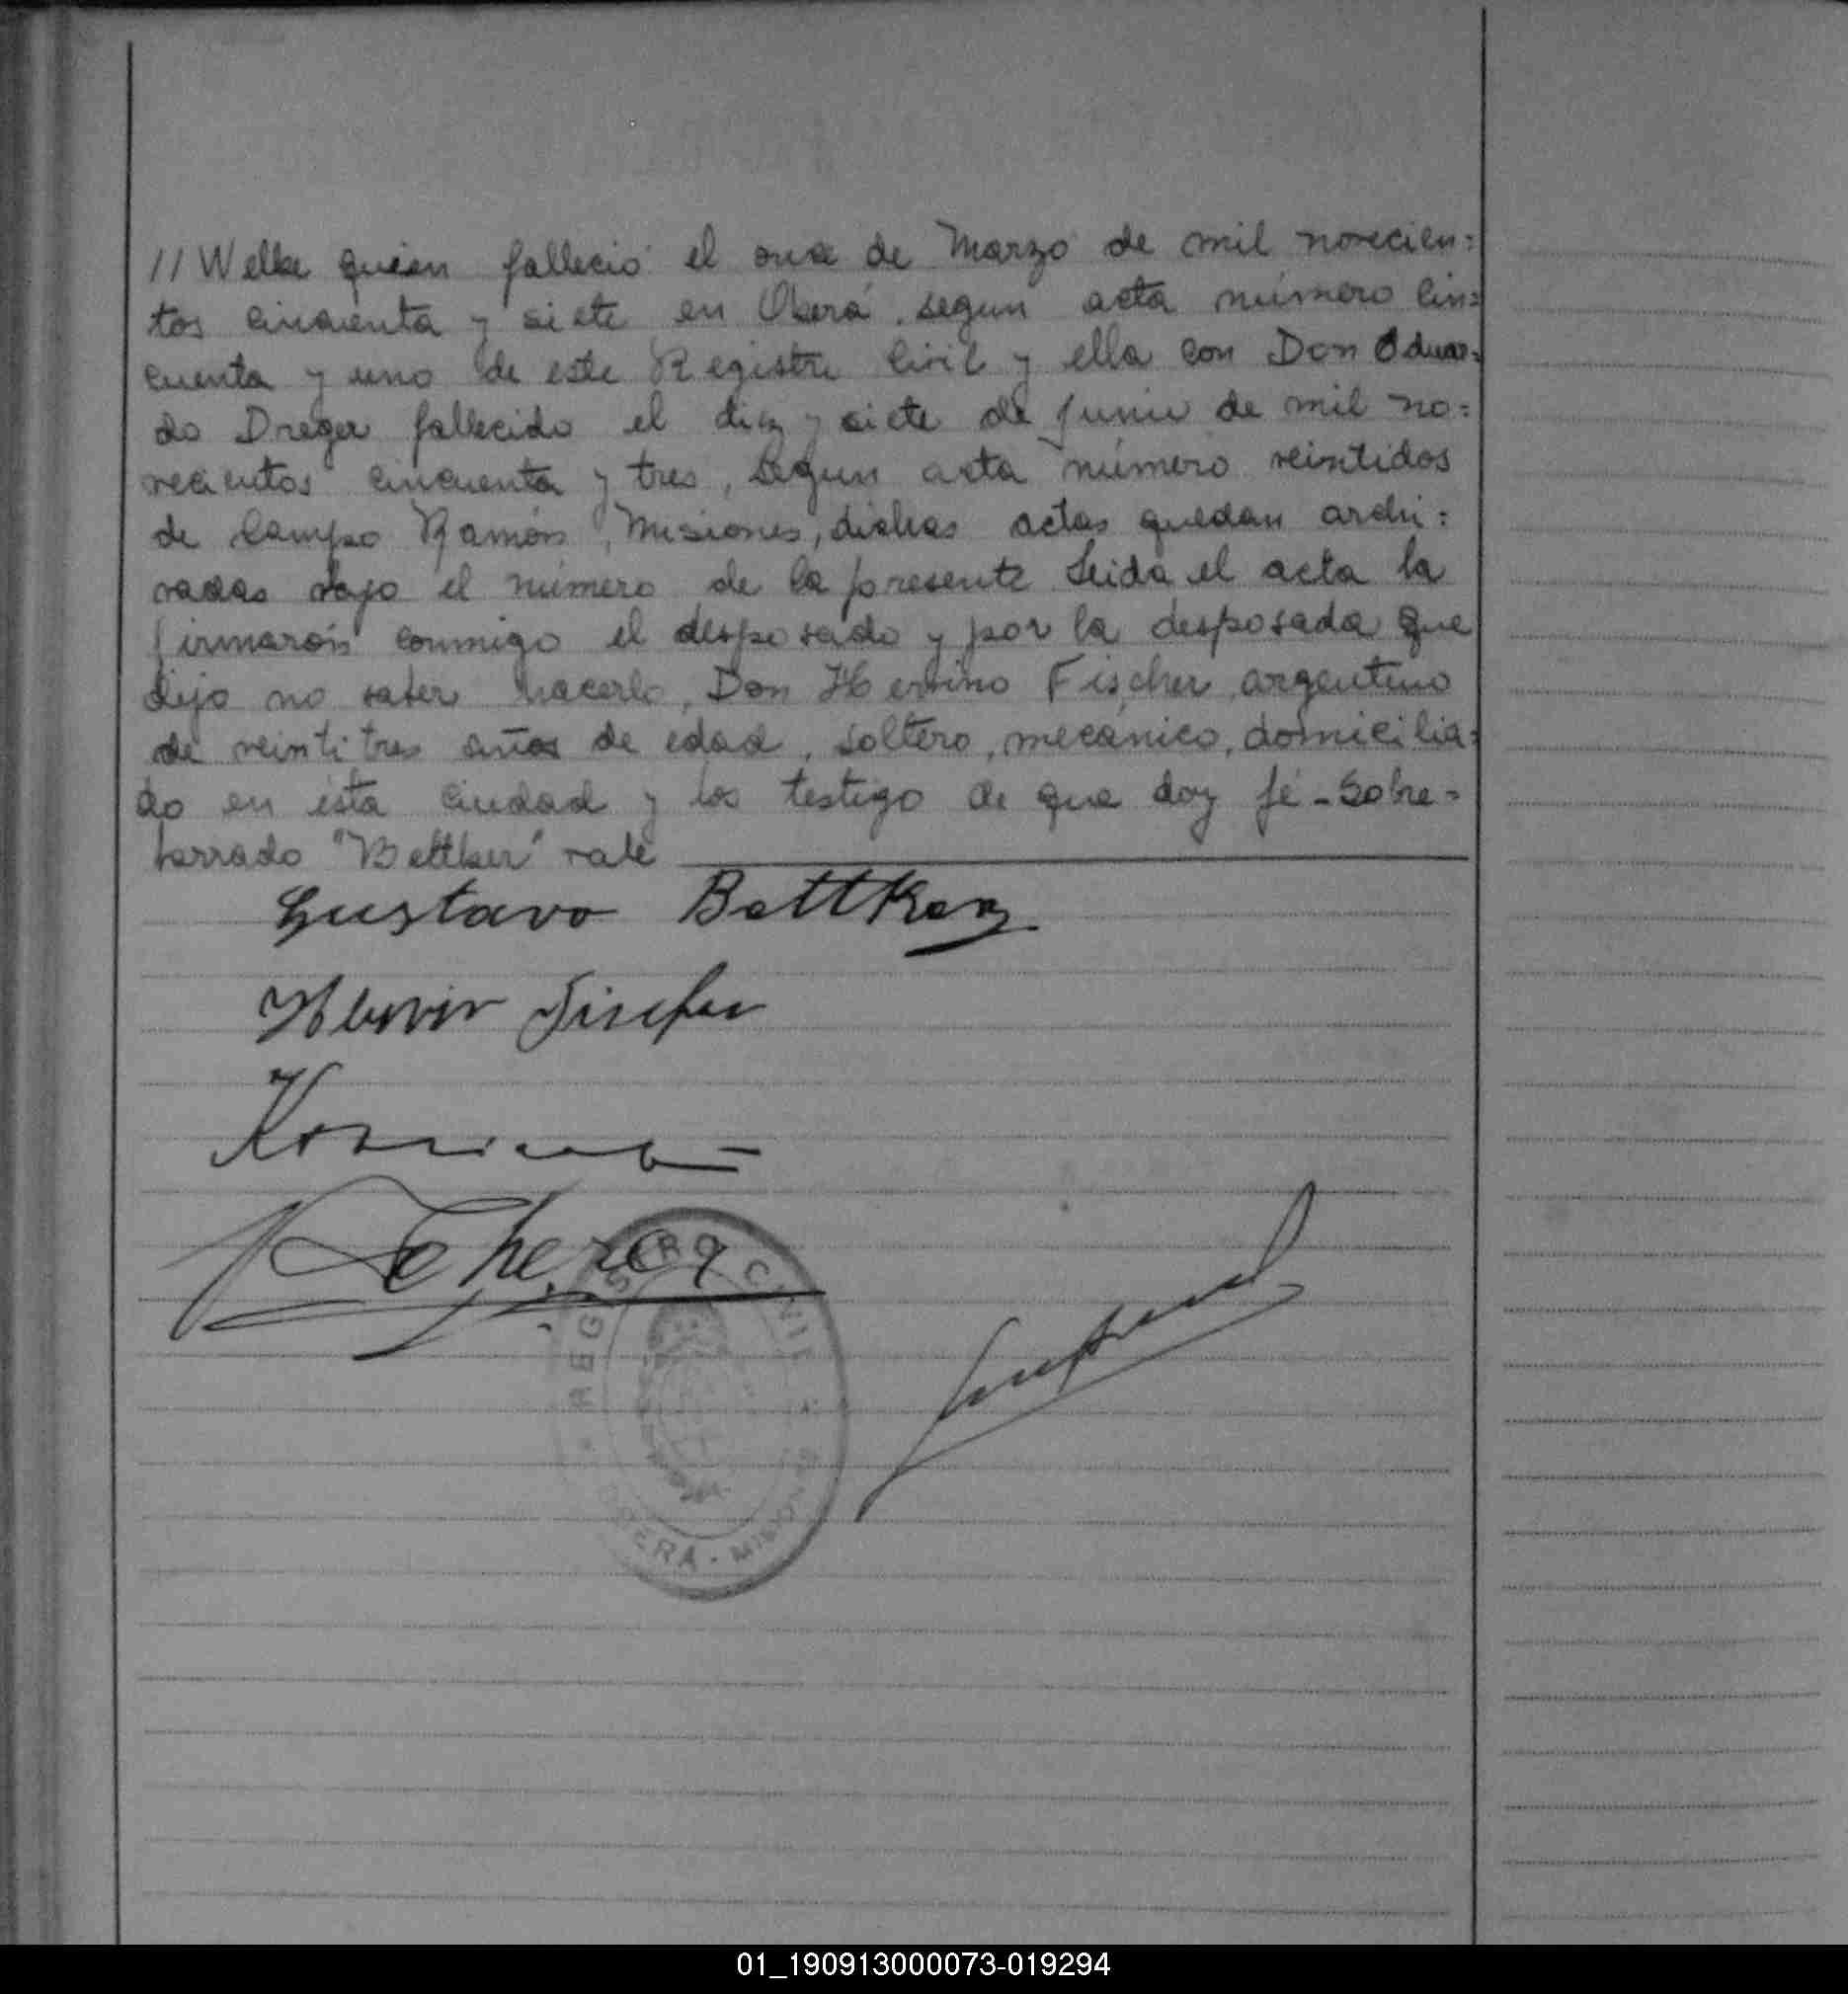 // Welke quien fallecio el once de Marzo de mil novecien=
tos cincuenta y siete en Oberá, segun acta número Cin=
cuenta y uno de este Registro Civil y ella con Don Eduar=
do Dreger fallecido el diez y siete de Junio de mil no=
vecientos cincuenta y tres, segun acta número veintidos
de Campo Ramón, Misiones, dichas actas quedan archi=
vadas bajo el número de la presente Leida el acta la
firmarón conmigo el desposado y por la desposada que
dijo no saber hacerlo, Don Hervino Fischer, argentino
de veintitres años de edad, soltero, mecánico, domicilia=
do en ésta ciudad y los testigo de que doy fé - Sobre=
borrado "Bettker" vale
Gustavo Bettker
Herwin Fischer
REGISTRO CIVIL
OBERÁ - MISIONES
01_190913000073-019294